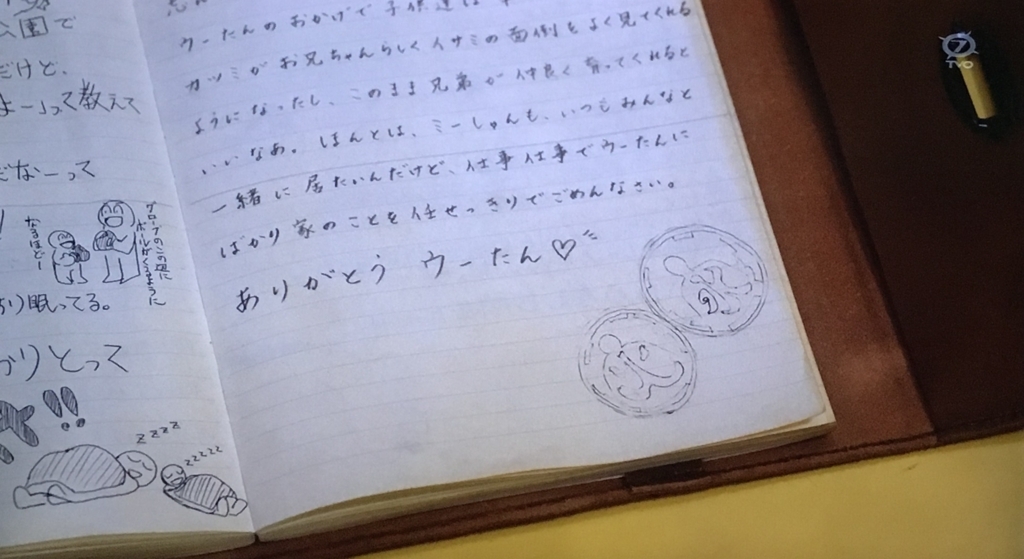 公園で
だけど、
まーって教えて
だなーって
なるほどー
グローブのこの辺に
ボールがくるように
り眠ってる。
かりとって
!!
zzzz
zzzzz
ウーたんのおかげで子供達は
カツミがお兄ちゃんらしくイサミの面倒をよく見てくれる
ようになったし、このまま兄弟が仲良く育ってくれると
いいなあ。ほんとは、ミーしゅんも、いつもみんなと
一緒に居たいんだけど、仕事仕事でウーたんに
ばかり家のことを任せっきりでごめんなさい。
ありがとう ウーたん♡
7
TVO